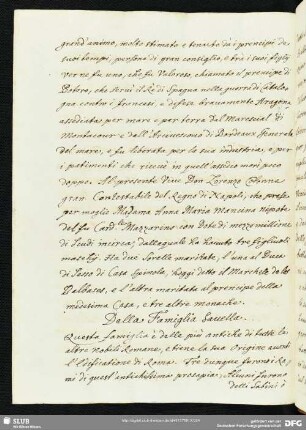 grand'animo, molto stimato e tenuto da i prencipi de
suoi tempi, persona di gran consiglio, e tra i suoi figli
verne fu uno, che fu Valoroso, chiamato il prencipe di
che servì il Rè di Spagna nelle guerre di Catalo,
gna contro i francesi, e difese bravamente
assediata per mare e per terra dal Marescial di
e dall'Arcivescovo di Bordeaux Generale
del mare, e fu liberata per la sua industria, e per
i patimenti che ricevè in quell'assedio morì poco
doppo. Al presente vive Don Lorenzo Colonna
gran Contestabile del Regno di Napoli, che prese
per moglie Madama Anna Maria Mancina nipote
del fu Card.le Mazzarino con dote di mezzo millione
di scudi incirca; dalla quale hà havuto tre figliuoli
maschij. Ha due sorelle maritate, l'una al Duca
di Sesto di Casa Spinola, hoggi detto il Marchese de los
Balbases, e l'altra maritata al prencipe della
medesima Casa, e tre altre monache.
Della Famiglia Savella.
Questa famiglia è delle più antiche di tutte le
altre nobili Romane, e tiene la sua Origine avanti
l'edificatione di Roma. Tre dunque furono i Ra,
mi di quest'antichissima prosapia. Alcuni furono
detti Sabini ò
SLUB
Wir führen Wissen.
gefördert von der
DFG Deutsche Forschungsgemeinschaft